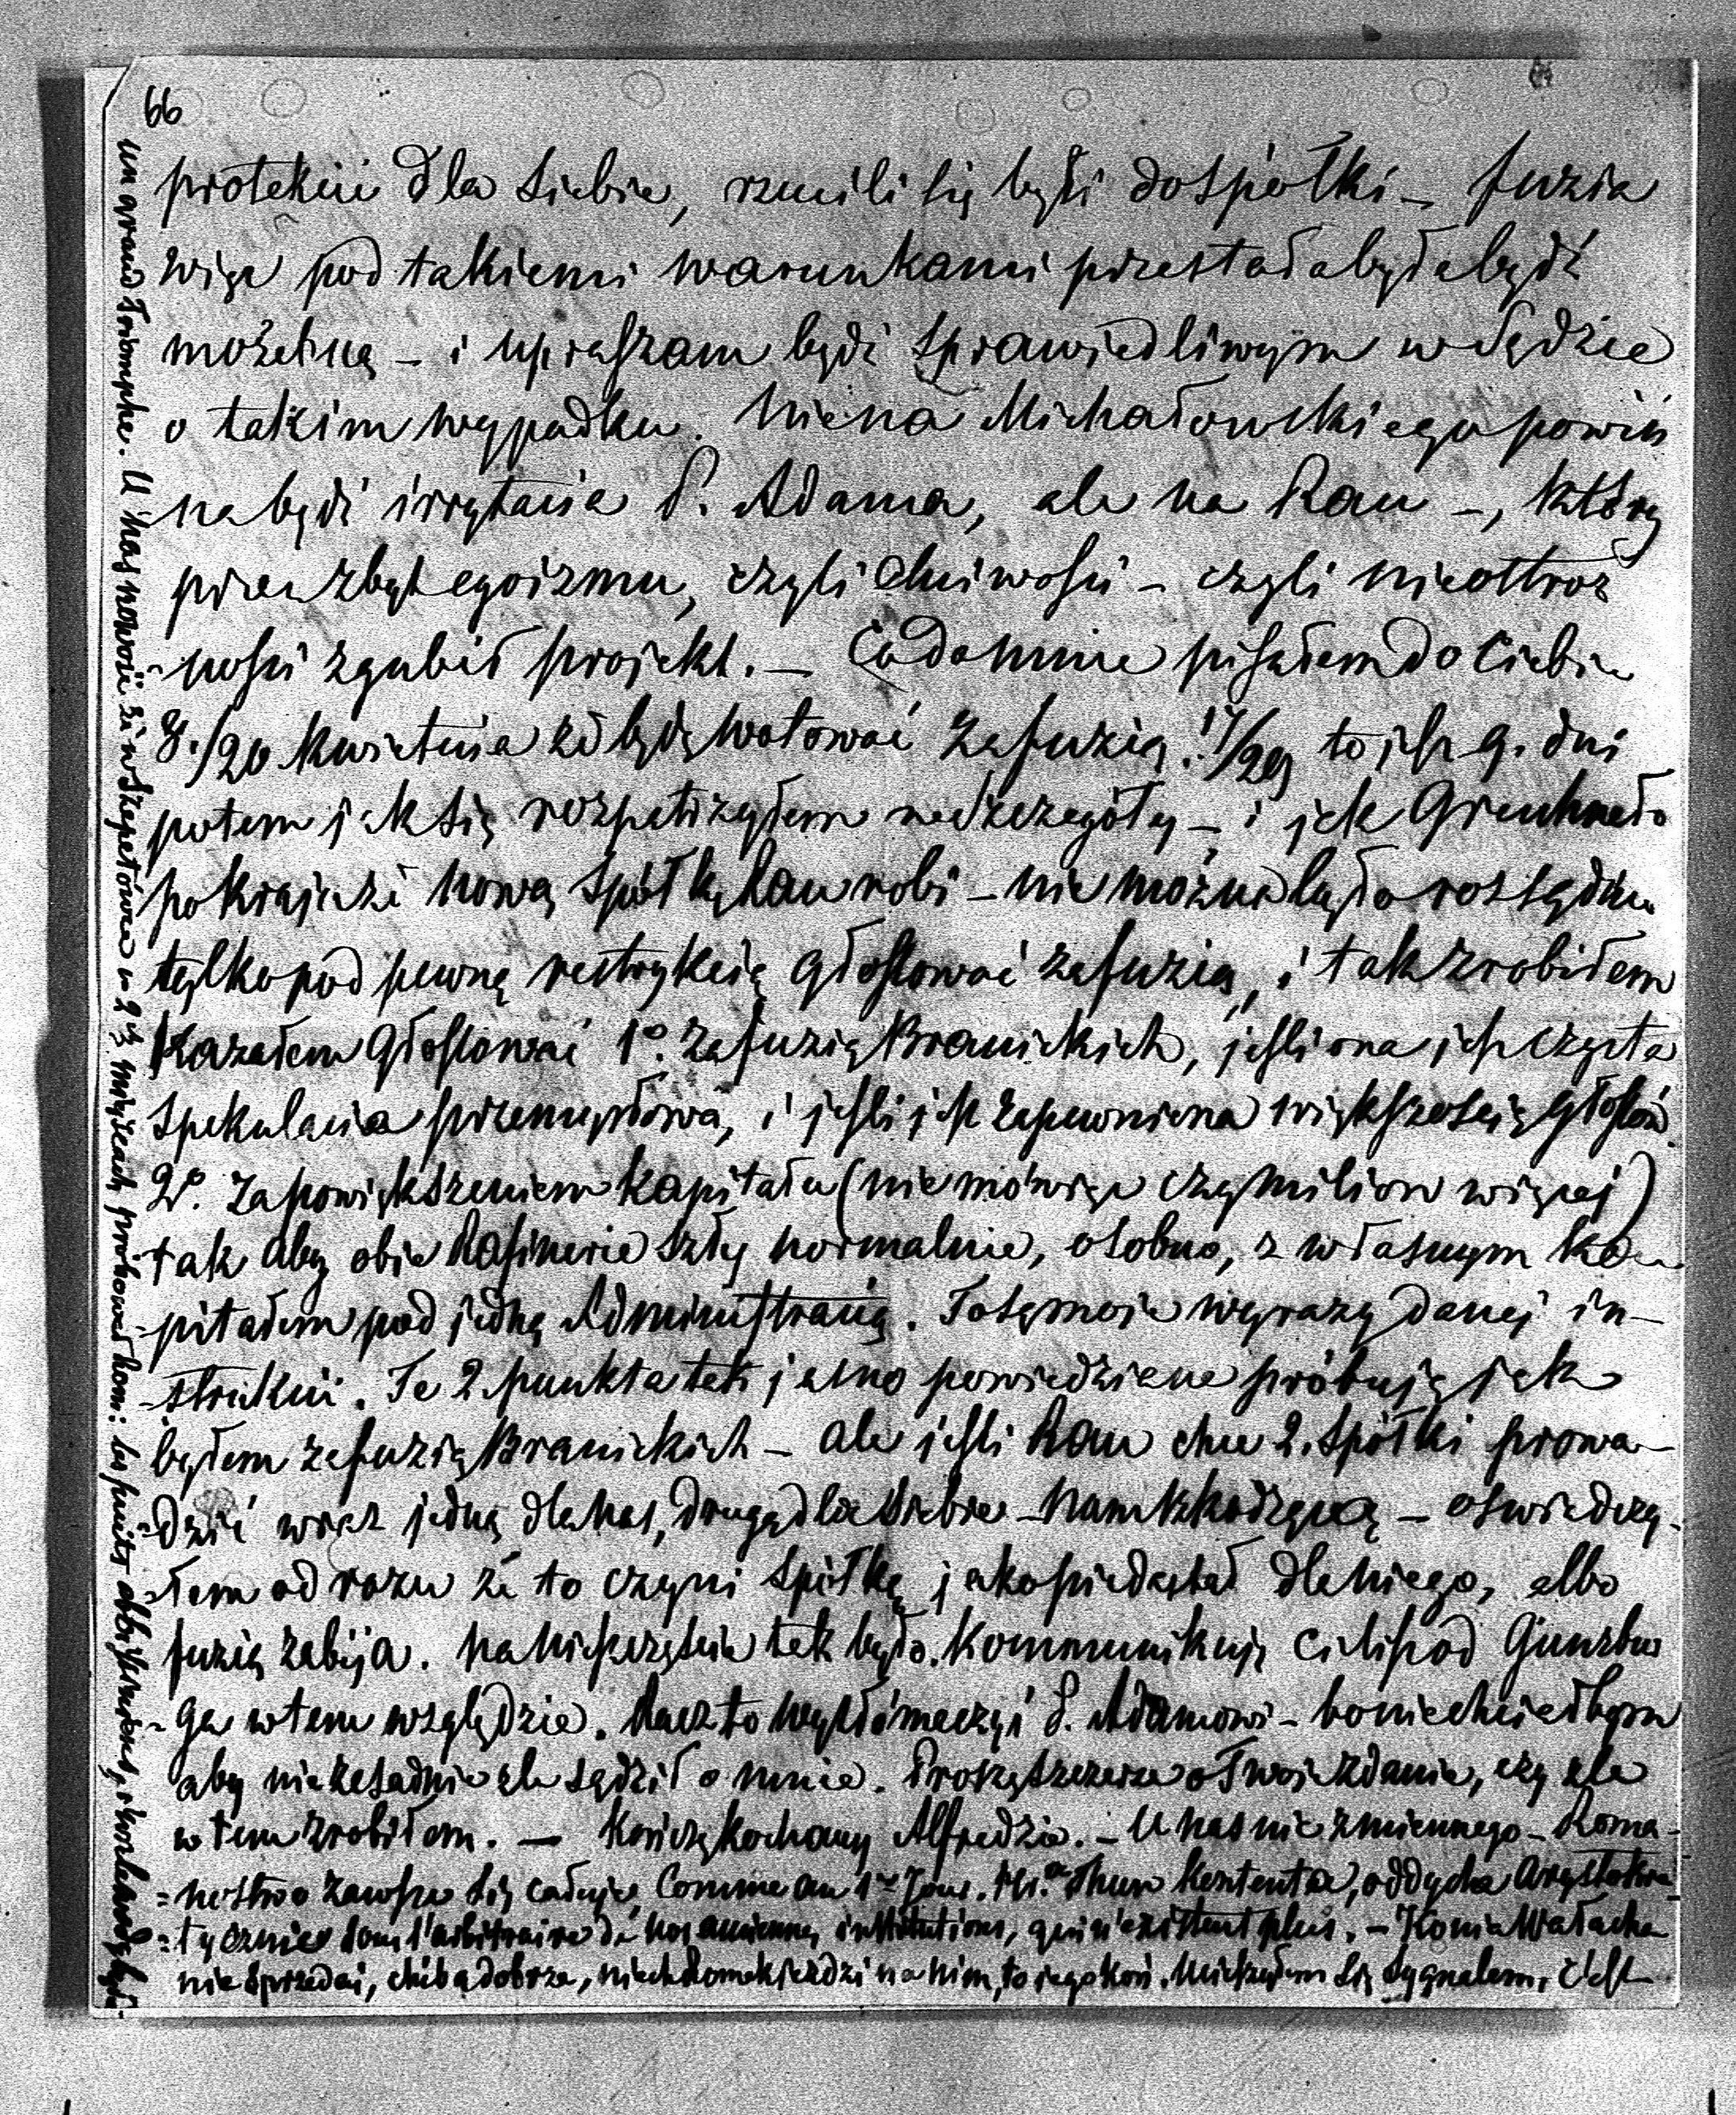 66
protekcii dla siebie, rzucili się byli do spółki – fuzia
więc pod takiemi warunkami przestała była być
możebną – i upraszam być sprawiedliwym w sądzie
o takim wypadku. Nie na Michałowskiego powin
na być irrytacia P. Adama, ale na Rau –, który
przez zbyt egoizmu, czyli chciwości – czyli nieostroż
-ności zgubił projekt. – Co do mnie pisałem do Ciebie
8./20 kwietnia że będę wotować za fuzią. 17/29 to jest 9. dni
potem jak się rozpatrzyłem w szczegóły – i jak gruchnęło
po kraju że nową spółkę Rau robi – nie można było rozsądnie
tylko pod pewną restrykcią głosować za fuzią, i tak zrobiłem
Kazałem głosować 1º. za fuzią Branickich, jeśli ona jest czysta
spekulacia przemysłowa, i jeśli jest zapewniona większością głosów.
2º. za powiększeniem kapitału (nie mówiąc czy milion więcej)
tak aby obie Rafinerie szły normalnie, osobno, z własnym ka-
-pitałem pod jedną Administracią. To są moje wyrazy danej in-
-strukcii. Te 2. punkta tak jasno powiedziane próbują jak
byłem za fuzią Branickich – ale jeśli Rau chce 2. spółki prowa-
-dzić wraz jedną dla nas, drugą dla siebie – nam szkodzącą – oświadczy-
-łem od razu że to czyni spółkę jako piedestał dla niego, albo
fuzią zabija. Na nieszczęście tak było. Kommunikuję Ci list od Gunzbur
-ga w tem względzie. Racz to wytłómaczyć P. Adamowi – bo niechciałbym
aby niezasadnie źle sądził o mnie. Proszę szczerze o Twoje zdanie, czy źle
w tem zrobiłem. – Kończę kochany Alfredzie. – U nas nic zmiennego – Roma-
=nostwo zawsze się całuje, Comme au 1er Jour. oddycha Arystokra-
=tycznie dans l'arbitraire de nos anciennes institutions, qui n'existent plus. – Konia Wałacha
nie sprzedaj, chiba dobrze, niech Romek jeździ na nim, to jego koń. Sygnalem, c'est
un grand Triomphe. U nas nowość że w Szepetówce